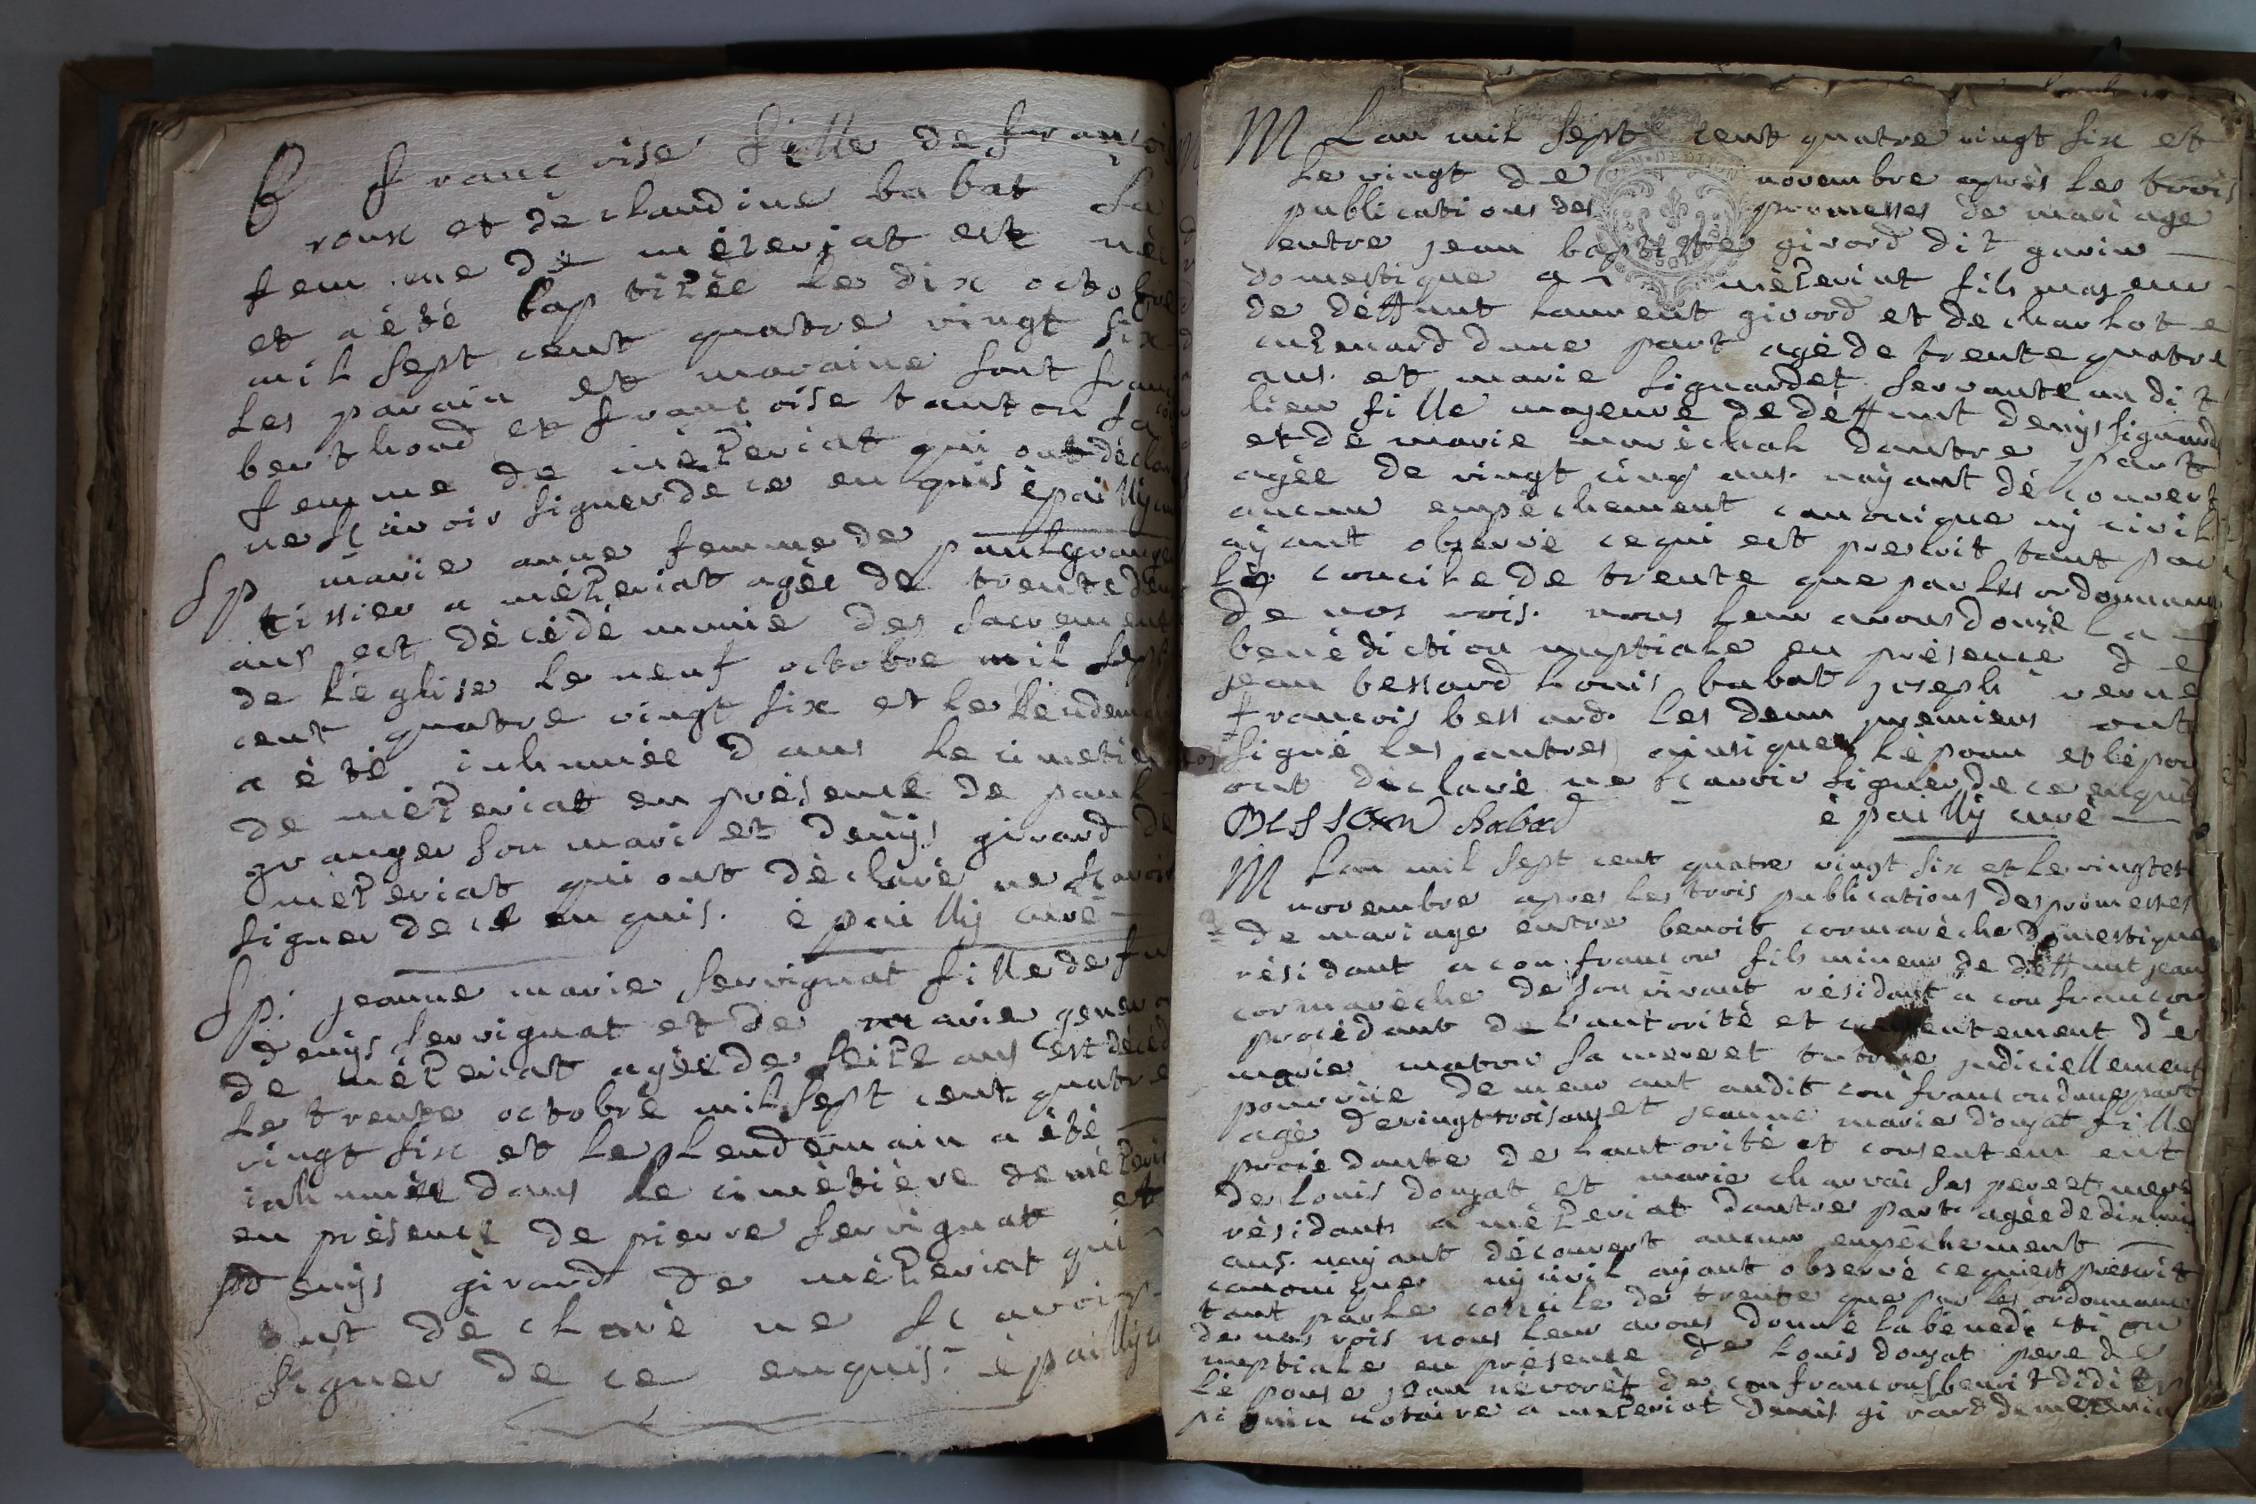 B francoise fille de francois
roux et de claudine babat sa
femme de mézeriat est née
et a été baptizée le dix octobre
mil sept cent quatre vingt six
les parain et maraine sont
berthoud et francoise tanton sa
femme de mézeriat qui ont déclaré
ne scavoir signer de ce enquis épailly
Sp marie anne femme de paul granger
tissier a mézeriat agée de trente deux
ans est décédé munie des sacrements
de léglise le neuf octobre mil sept
cent quatre vingt six et le lendemain
a été inhumée dans le cimetiere
de mézeriat en présence de paul
granger son mari et denys girard de
mézeriat qui ont déclaré ne scavoir
signer de ce enquis. épailly curé
Sp. jeanne marie servignat fille de fu
denys servignat et de marie
de mézeriat agée de seize ans est décédé
le trente octobre mil sept cent quatre
vingt six et le lendemain a été
inhumée dans le cimétiére de mézeriat
en présence de pierre servignat et
denys girard de mézeriat qui
ont déclaré ne scavoir
signer de ce enquis. épailly
M Lan mil sept cent quatre vingt six et
le vingt de novembre après les trois
publications des promesses de mariage
entre jean baptiste girord dit gavin
domestique a mézeriat fils majeur
de déffunt laurent girord et de charlote
dune part agé de trente quatre
ans. et marie signardet servante au dit
lieu fille majeure de déffunt denys signardet
et de marie maréchal dautre part
agée de vingt cinq ans. nayant découvert
aucun empéchement canonique ny civil
ayant observé ce qui est prescrit tant par
le concile de trente que par les ordonnances
de nos rois. nous leur avons donné la
benédiction nuptiale en présence de
jean bessard louis babat joseph verne
francois bessard. les deux premiers ont
signé les autres ainsi que lépoux et lépouse
ont déclaré ne scavoir signer de ce enquis
babad épailly curé
M Lan mil sept cent quatre vingt six et le vingt et
novembre apres les trois publications des promesses
de mariage entre benoit cormaréche domestique
résidant a confrancon fils mineur de déffunt jean
cormaréche de son vivant résidant a confrancon
procédant de l'autorité et consentement de
marie maton sa mere et tutrice judiciellement
pourvüe demeurant audit confrancon dune part
agé de vingt trois ans et jeanne marie donjat fille
procédante de lautorité et consentement
de louis donjat et marie charvai ses pere et mere
résidants a mézeriat dautre part agée de dix huit
ans. nayant découvert aucun empéchement
canonique ny civil ayant observé ce qui est prescrit
tant par le concile de trente que par les ordonnances
de nos rois nous leur avons donné la benediction
nuptiale en présence de louis donjat pere de
lépouse jean névoret de confrancon benoit
notaire a mézeriat denis girard de mézeriat